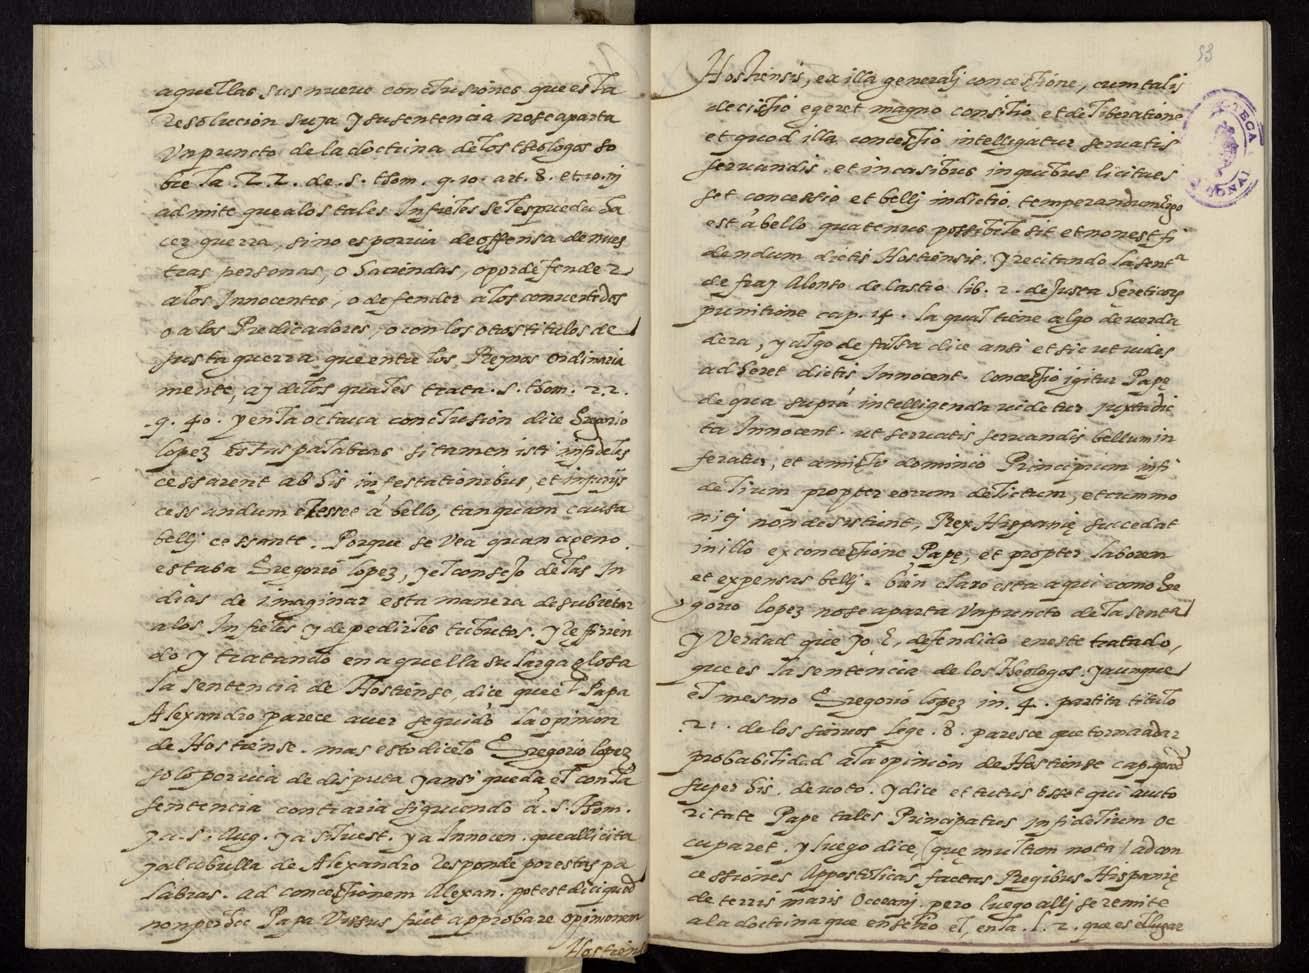 aquellas sus nueve conclusiones que esta
resolucion suya y su sentencia no se aparta
Un puncto de la doctrina de los theologos so
bre la .22. de .s. thom. q. 10. art. 8. et. 10. ni
admite que a los tales Infieles se les pueda ha
cer guerra, sino es por via de offensa de nues
tras personas, o haciendas, o por defender
a los Innocentes, o defender a los convertidos
o a los Predicadores, o con los otros titulos de
justa guerra que entre los Reynos ordinaria
mente, ay de los quales trata .S. thom. 22.
.q. 40. y en la octava conclusion dice Gregorio
lopez estas palabras si tamen isti infideles
cessarent ab his infestationibus, et injurijs
cessandum esset à bello, tanquam causa
bellj cessante. Porque se vea quan ageno
estaba Gregorio lopez, y el consejo de las In
dias de imaginar esta manera de subietar
a los Infieles y de pedirles tributos. y refirien
do y tratando en aquella su larga glosa
la sentencia de Hostiense dice que el Papa
Alexandro parece aver seguido la opinion
de Hostiense. mas esto dicelo Gregorio lopez
solo por via de disputa y ansi queda el con la
sentencia contraria siguiendo à .S. Thom.
y a .S. Aug. y a Siluest. y a Innocen. que alli cita
y a la bulla de Alexandro responde por estas pa
labras. ad concessionem Alexan. potest dici quod
non per hoc Papa Visus fuit approbare opinionem
Hostien
53
Hostiensis, ex illa generalj concessione, cum talis
decissio egeret magno consilio et deliberatione
et quod illa concessio intelligatur servatis
servandis. et in casibus in quibus licitu es
set concessio et bellj indictio. temperandum ergo
est à bello quatenus possibile sit et non est fi
dendum dictis Hostiensis. y recitando la sent.ª
de fray Alonso de Castro lib. 2. de Justa hereticorum
punitione cap. 14. la qual tiene algo de verda
dera, y algo de falsa dice ansi et sic ut vides
adheret dictis Innocent. Concessio igitur Papę
de qua suprà intelligenda videtur juxta dic
ta Innocent. ut servatis servandis bellum in
feratur, et amisso dominio Principium infi
delium propter eorum delictum, et cum mo
niti non desistunt, Rex Hispanię succedat
in illo ex concessione Papę, et propter laborem
et expensas bellj. bien claro esta aqui como Gre
gorio lopez no se aparta Un puncto de la sent.ª
y Verdad que yo è, defendido en este tratado,
que es la sentencia de los theologos. y aunque
el mesmo Gregorio lopez in .4. partita titulo
.21. de los siervos lege .8. paresce que torna a dar
probabilidad a la opinion de Hostiense cap. quod
super his. de voto. y dice et tutus esset qui auto
ritate Pape tales Principatus infidelium oc
cuparet. y luego dice (quę multum nota) ad con
cessiones Appostolicas factas Regibus Hispanię
de terris maris Oceanj. pero luego allj se remite
a la doctrina que enseño el, en la .l. 2. que es el lugar